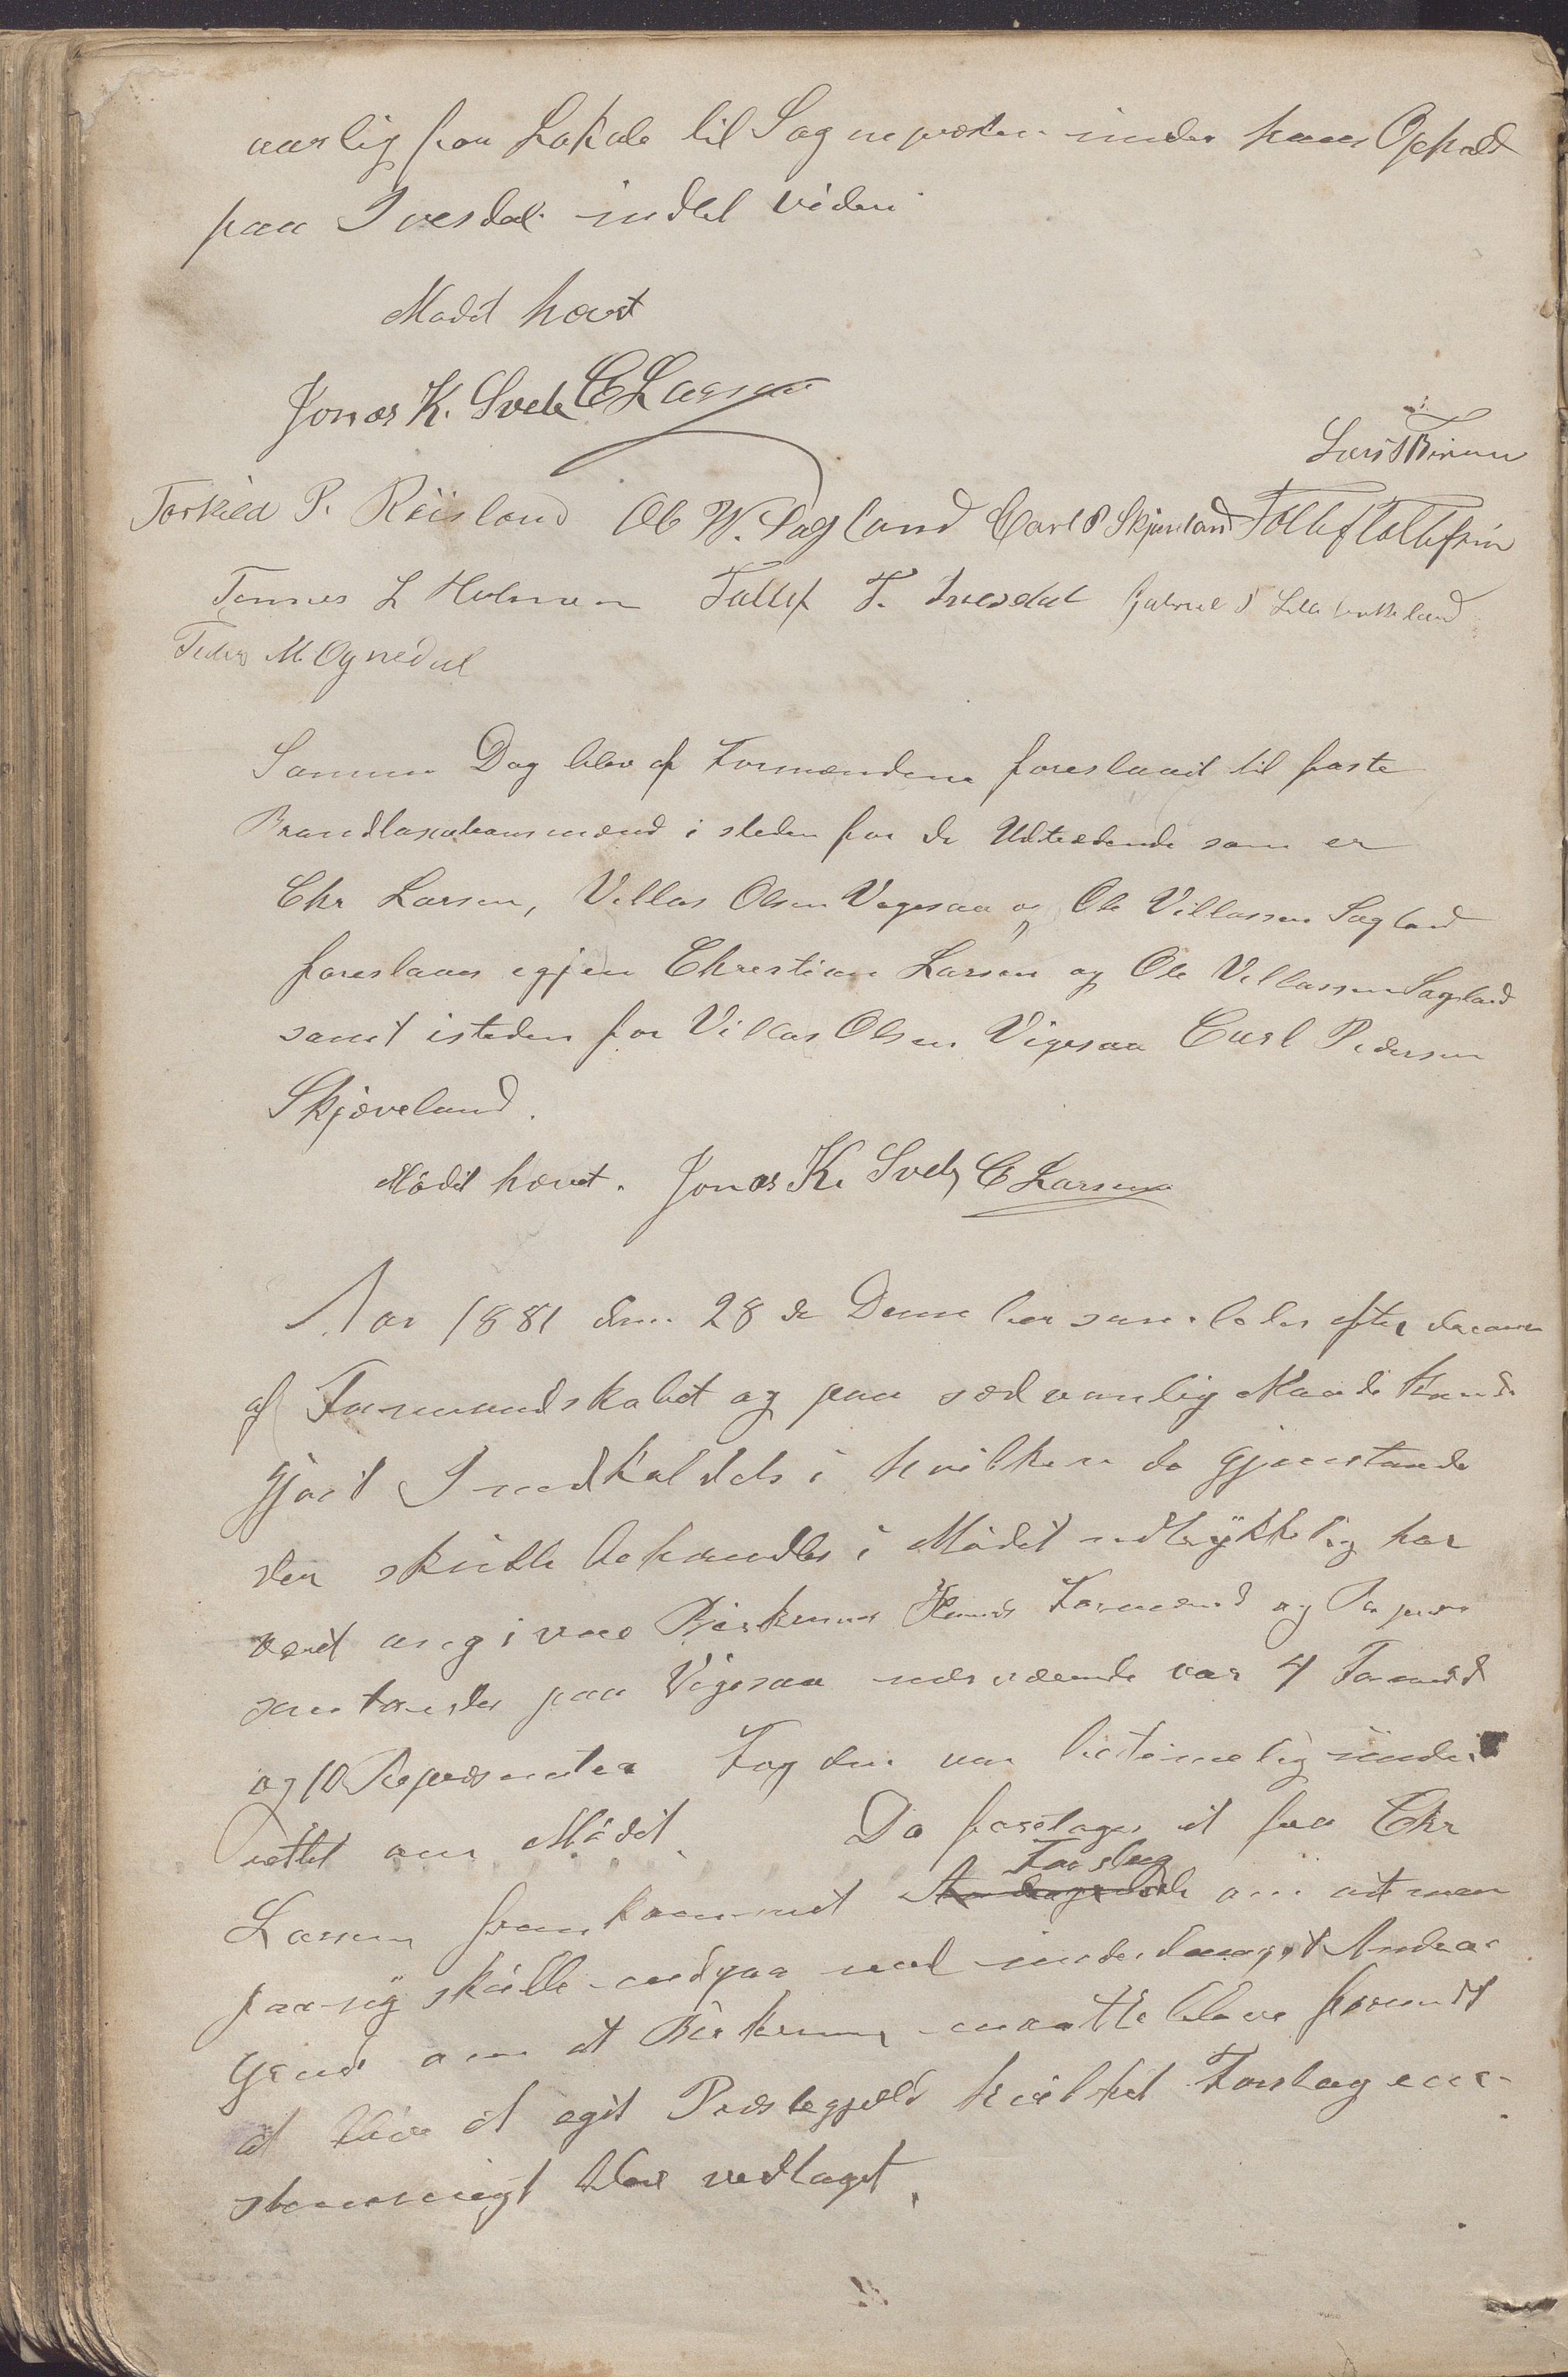 aarlig for Lokale til Sognepresten under hans Ophold
paa Ivesdal indtil videre
Mødet hævet
Jonas K. Svela C Larsen
Torkild P. Røisland Ole W. Sagland Carl P Skjæveland Tollef Tollefsen
Tønnes L Holmen Tollef T. Ivesdal Gabriel
Peder M. Ognedal
Samme Dag blev af Formændene foreslaaet til faste
Brandtaxationsmænd i steden for de Udtrædende som er
Chr Larsen, Villas Olsen Vigesaa og Ole Villassen Sagland
foreslaaes igjen Christian Larsen og Ole Villassen Sagland
samt isteden for Villas Olsen Vigesaa Carl Pedersen
Skjæveland.
Mødet hævet. Jonas K. Svela C Larsen
Aar 1881 den 28de Decemb samledes efter
af Formandskabet og paa sædvanlig Maade kund
gjort Indkaldelse i hvilken de Gjenstande
der skulle behandles i Mødet udtrykkelig har
været angivne Bierkreims Herreds Formænd og Repræ
sentanter paa Vigesaa nærværende var 4 Formænd
og 10 Repræsentanter Fogden var betimelig under
rettet om Mødet. Da foretages et fra Chr
Forslag
Larsen fremkommet om at man
paany skulle indgaa med underdanigst Andra
gende om at Bierkreim maatte blive forundt
at blive et eget Præstegjæld hvilket Forslag een-
stemmigt blev vedtaget.